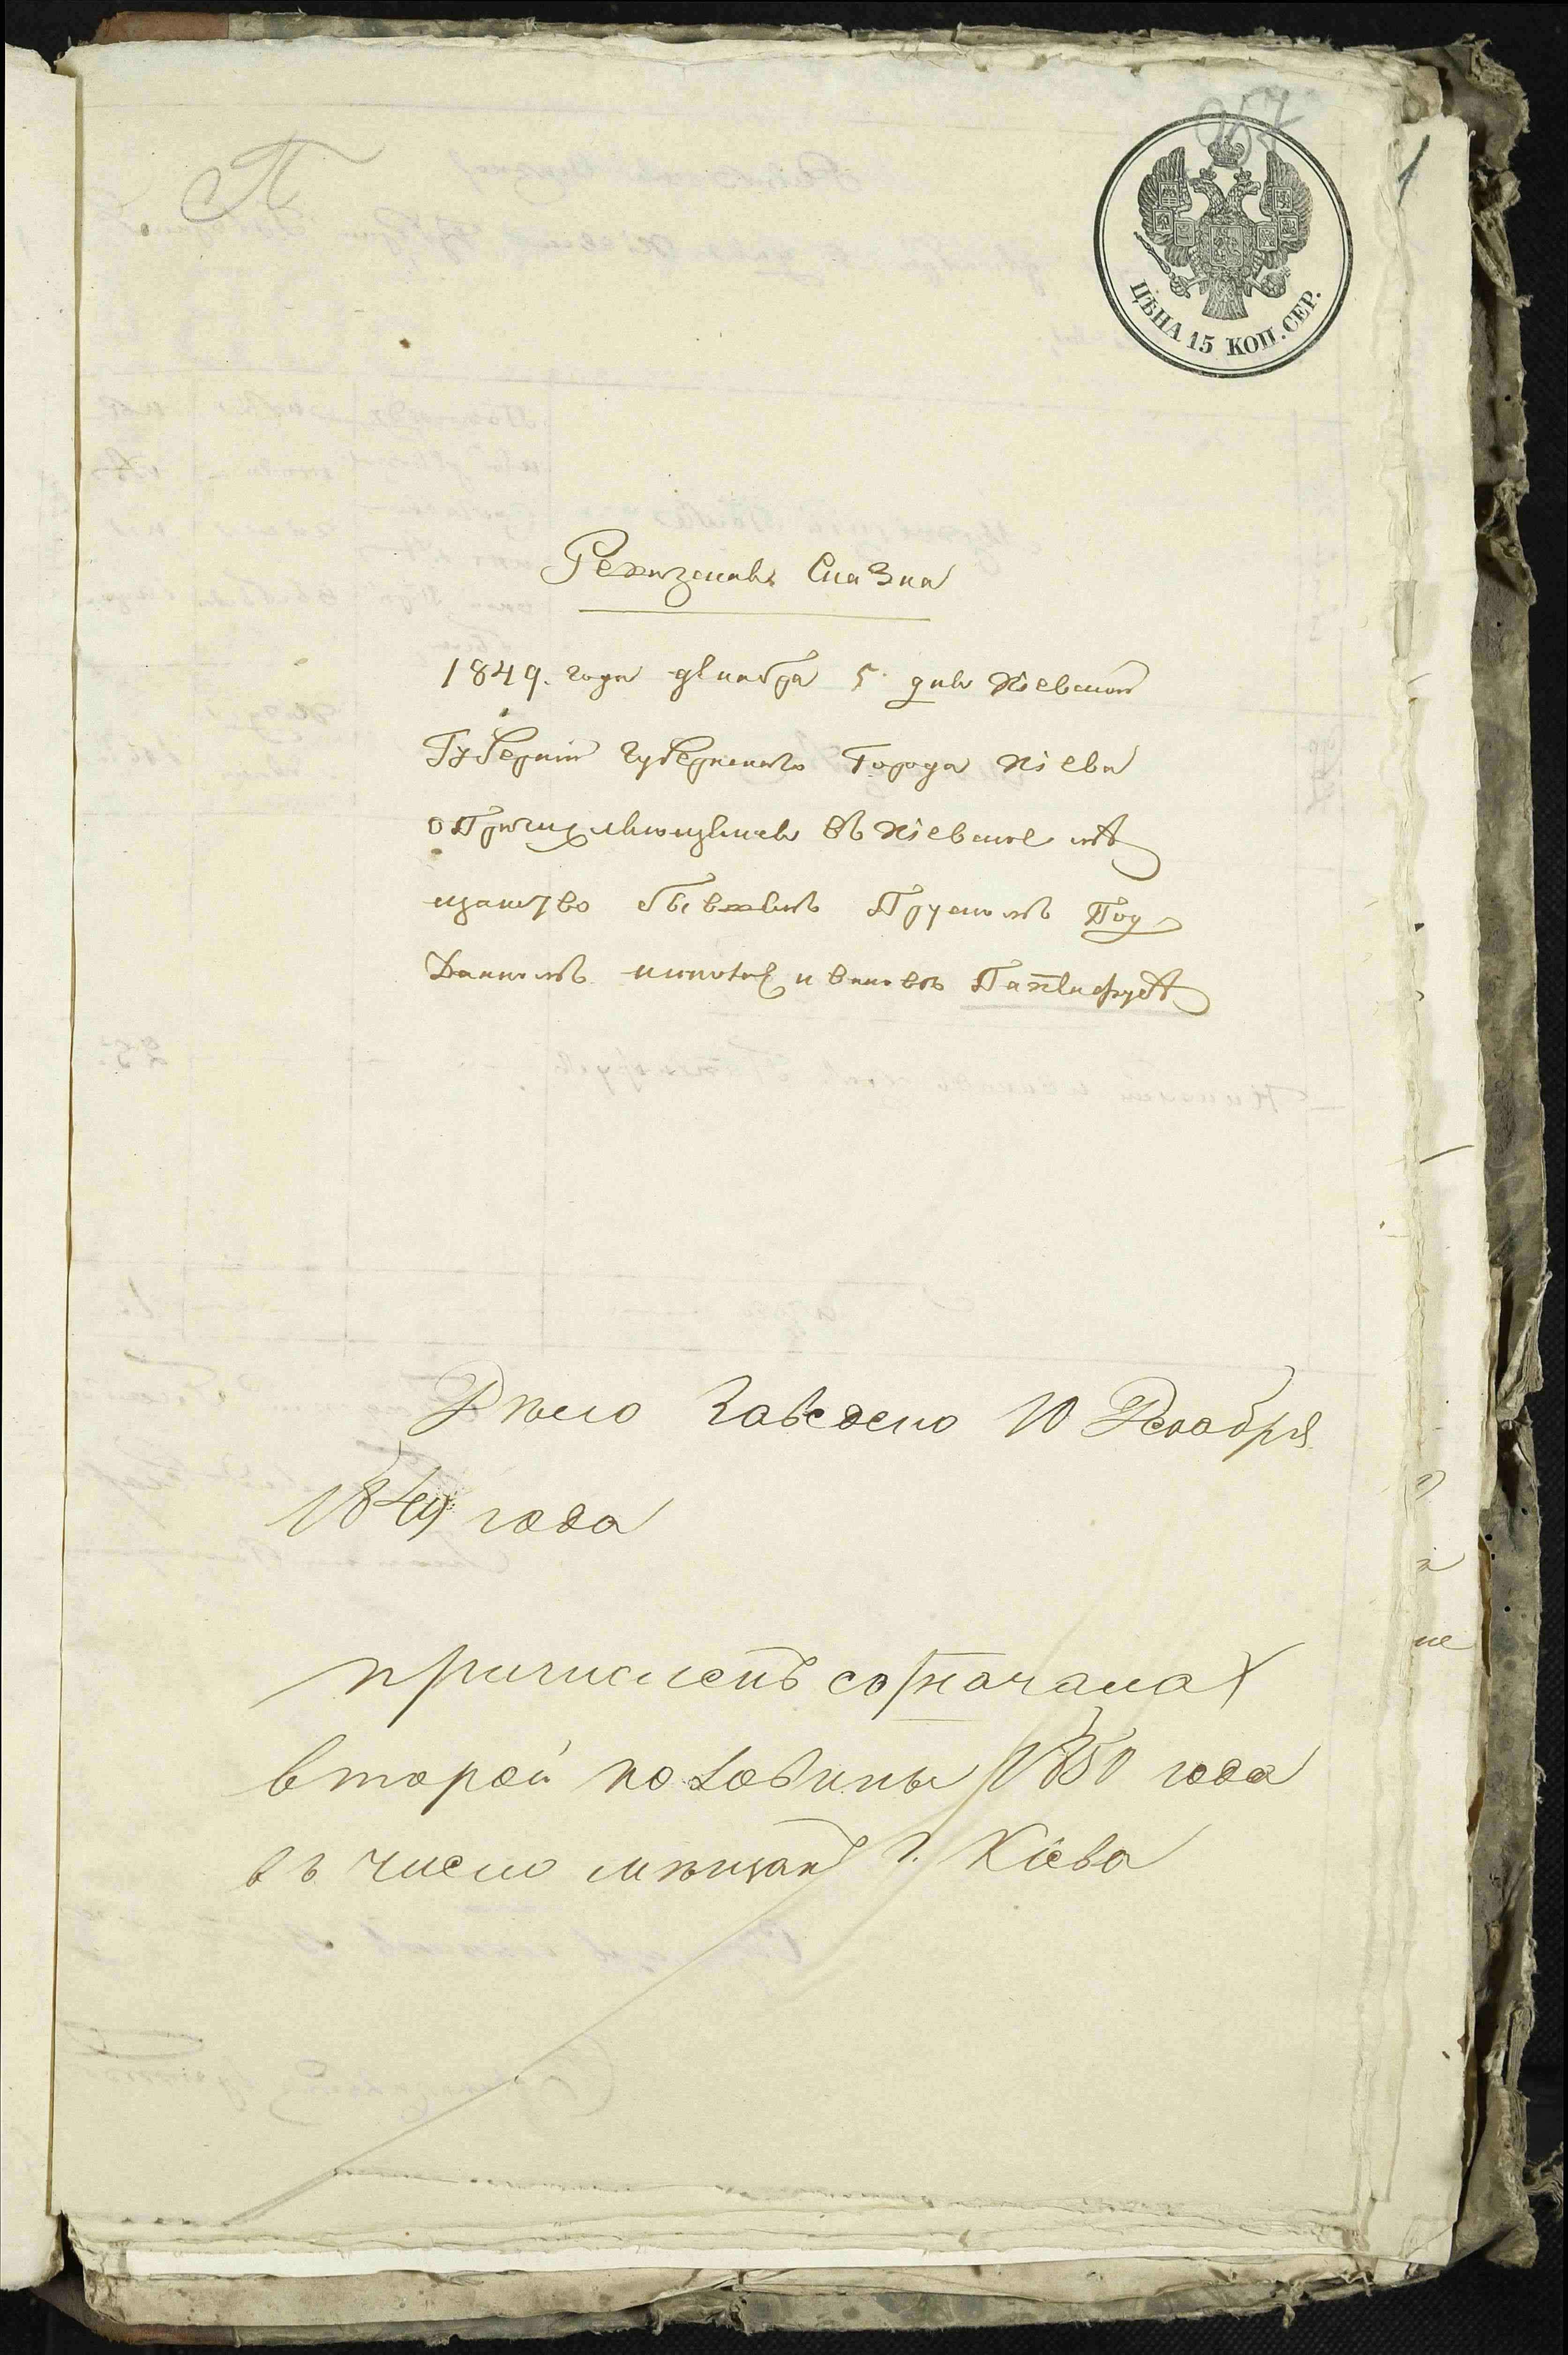 П
957
1
ЦѢНА 15 КОП. СЕР.
Ревизская Сказка
1849. года декабря 5. дня Кіевской
Губерніи Губернскаго Города Кіева
о причисляющемся въ Кіевское мѣ
щанство бывшемъ Прускомъ Под
Данномъ Ивановѣ
Дѣло Заведено 10 Декабря
1849 года
причисленъ со начала
второй половины 1850 года
въ число мѣщанъ г. Кіева